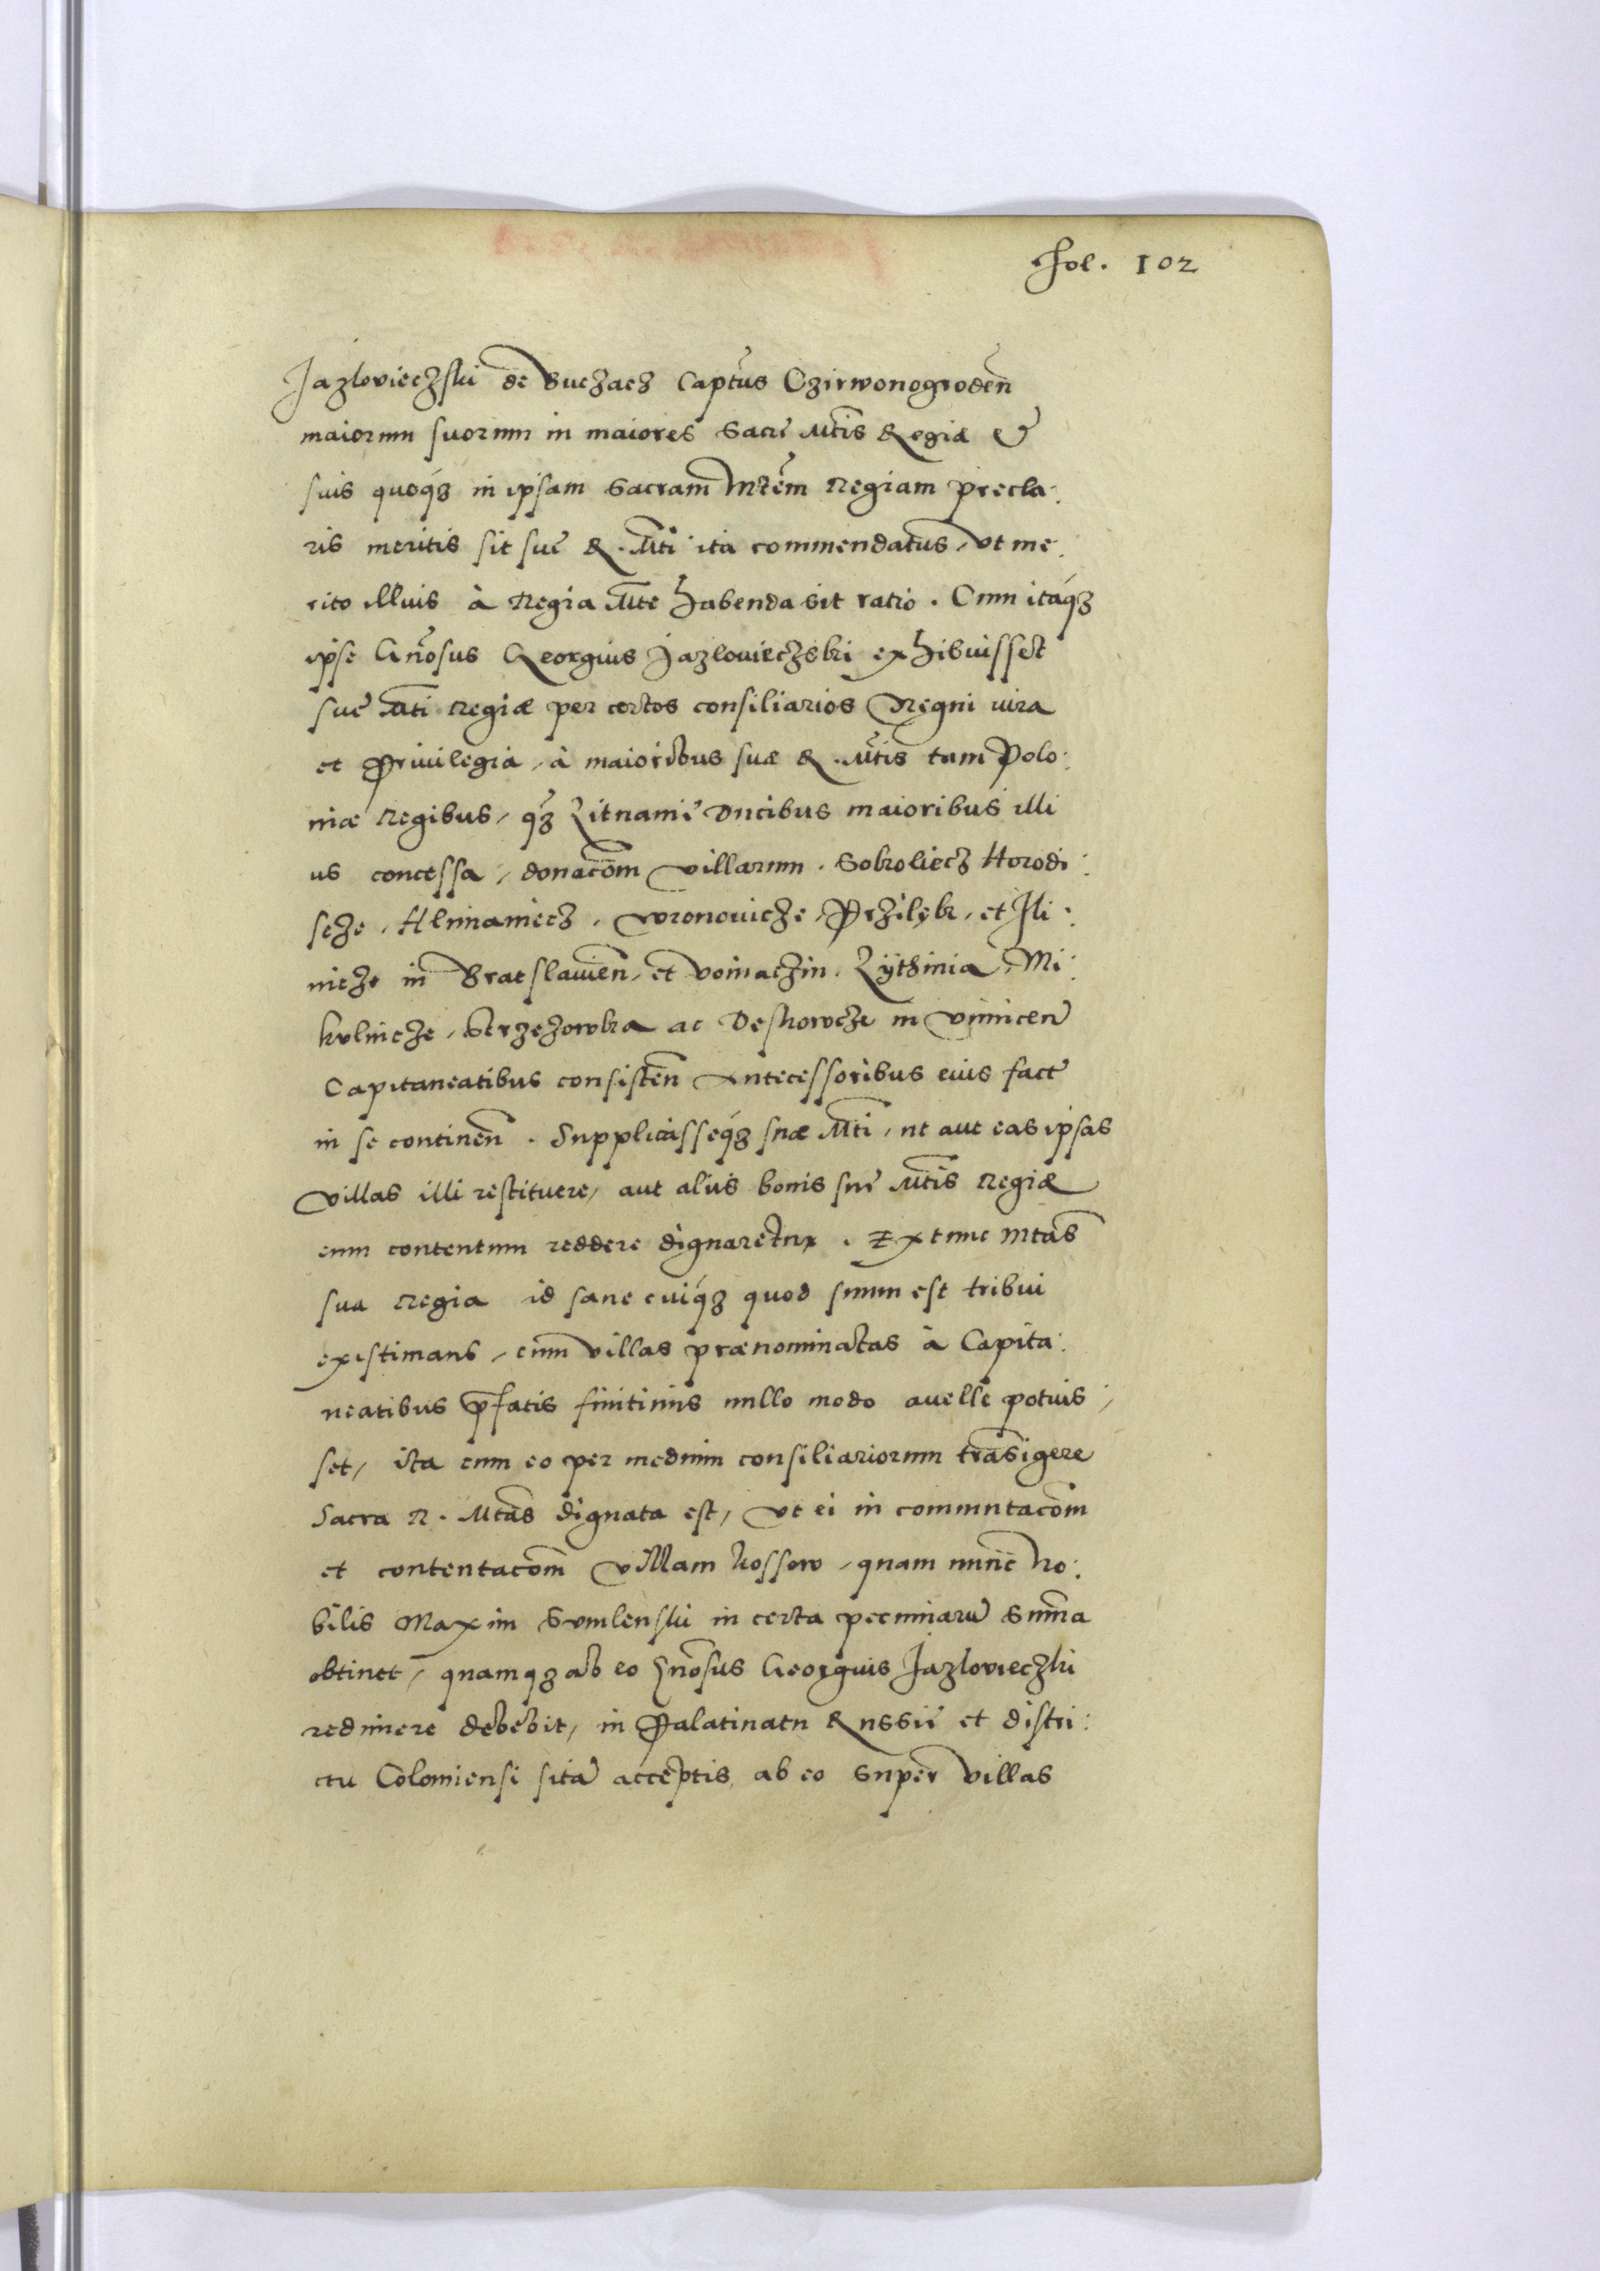 Fol. 102
Jazlovieczski de Buczacz Capt̃us Czirwonogroden̄
maiorum suorum in maiores Sacrę Mt̄is Regiæ et
suis quoq́ꝫ in ipsam Sacram Mtēm Regiam precla:
ris meritis sit suę R. Mti ita commendatus, vt me:
rito illius à Regia Mt̄e habenda sit ratio. Cum itaq́ꝫ
ipse Gn̄osus Georgius Jazlovieczski exhibuisset
suę Mt̄i Regiæ per certos consiliarios Regni iura
et Privilegia, à maioribus suæ R. Mt̄is tam Polo:
niæ Regibus, q̄ꝫ Litvanię Ducibus maioribus illi
us concessa, donac̄om villarum. Sokoliecz Horodi:
scze, Hlinianiecz, Woronovicze, Przilęk, et Ili:
nicze in Bratslavien̄, et Voinaczin. Zÿthinia, Mi:
kulincze, Strzezowka ac Deskowcze in Vinnicen̄
Capitaneatibus consisten̄ Antecessoribus eius factę
in se continen̄. Supplicasseq́ꝫ suæ Mt̄i, ut aut eas ipsas
villas illi restituere, aut alijs bonis suę Mt̄is Regiæ
eum contentum reddere dignaretur. Extunc Mtas̄
sua Regia id sane cuiq́ꝫ quod suum est tribui
existimans, cum villas prænominatas à Capita:
neatibus p̄fatis finitimis nullo modo avelli potuis,
set, ita cum eo per medium consiliariorum trāsigere
Sacra R. Mtas̄ dignata est, vt ei in commutac̄om
et contentac̄om villam Kossow, quam nunc No:
bilis Maxim Sumlenski in certa pecuniarū Sum̄a
obtinet, quamqꝫ ab eo Gn̄osus Georgius Jazlovieczki
redimere debebit, in Palatinatu Russię et distri:
ctu Colomiensi sitā acceptis ab eo super villas